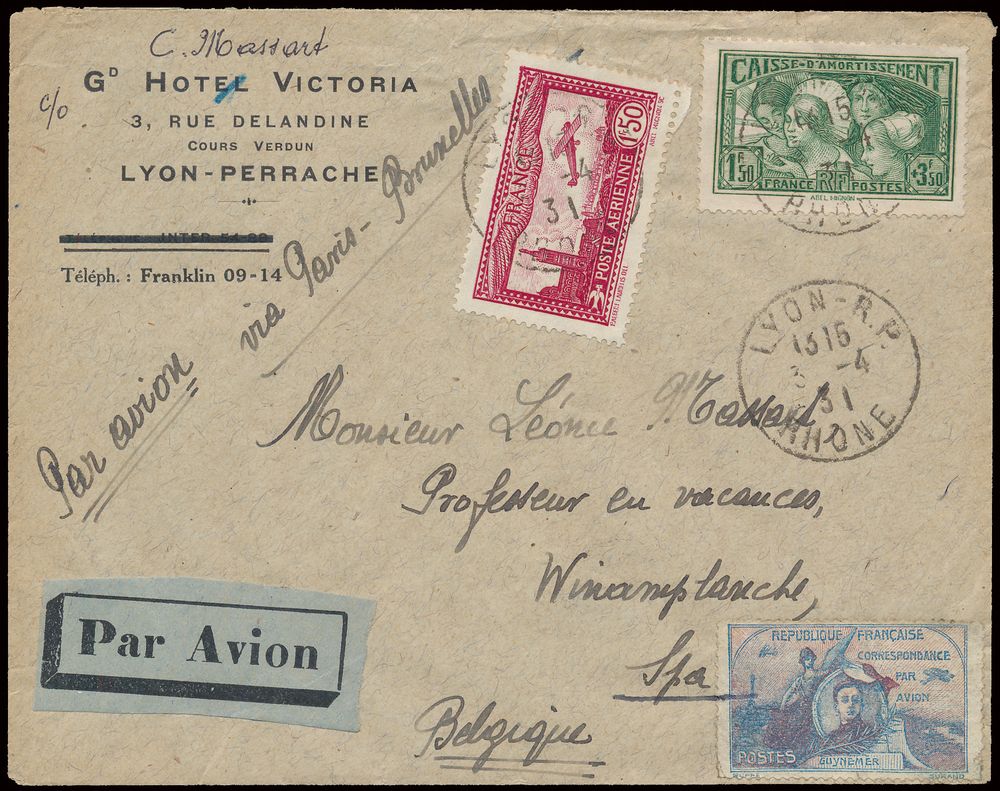 C. Massart
c/o
Gᴰ HOTEL VICTORIA
3, RUE DELANDINE
COURS VERDUN
LYON-PERRACHE
Téléph. : Franklin 09-14
Par avion via Paris-Bruxelles
FRANCE
POSTE AERIENNE
1F50
CAISSE-D'AMORTISSEMENT
1F.50 +3F.50
FRANCE RF POSTES
ABEL MIGNON
LYON-R.P.
1315
3 -4
31
RHONE
Monsieur Léonce Massart
Professeur en vacances,
Winamplanche,
Spa
Belgique
Par Avion
REPUBLIQUE FRANÇAISE
CORRESPONDANCE
PAR
AVION
POSTES
GUYNEMER
DURAND